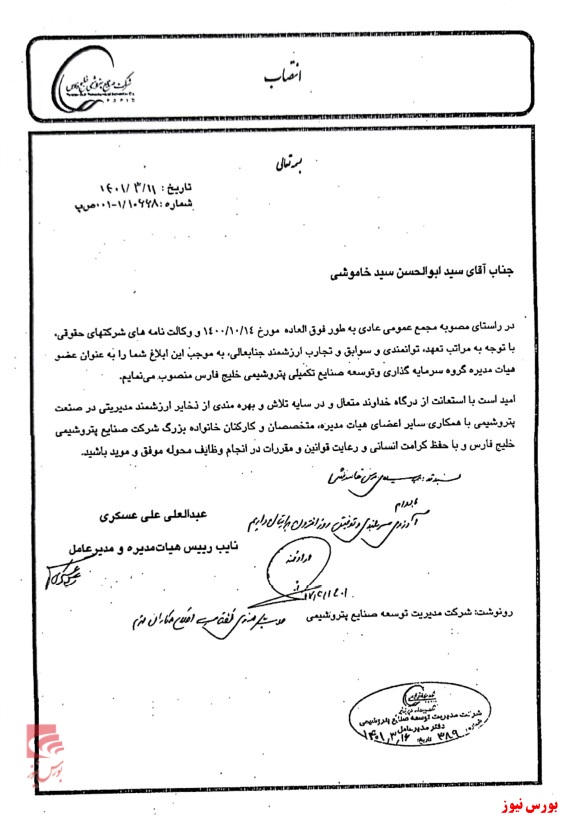 انتصاب
شرکت صنایع پتروشیمی خلیج فارس
بسمه تعالی
تاریخ : ۱۴۰۱/۳/۱۱
شماره : ۰۰۱-۱/۱۰۶۶۸ص‌پ
جناب آقای سید ابوالحسن سید خاموشی
در راستای مصوبه مجمع عمومی عادی به طور فوق العاده مورخ ۱۴۰۰/۱۰/۱۴ و وکالت نامه های شرکتهای حقوقی،
با توجه به مراتب تعهد، توانمندی و سوابق و تجارب ارزشمند جنابعالی، به موجب این ابلاغ شما را به عنوان عضو
هیات مدیره گروه سرمایه گذاری وتوسعه صنایع تکمیلی پتروشیمی خلیج فارس منصوب می‌نمایم.
امید است با استعانت از درگاه خداوند متعال و در سایه تلاش و بهره مندی از ذخایر ارزشمند مدیریتی در صنعت
پتروشیمی با همکاری سایر اعضای هیات مدیره، متخصصان و کارکنان خانواده بزرگ شرکت صنایع پتروشیمی
خلیج فارس و با حفظ کرامت انسانی و رعایت قوانین و مقررات در انجام وظایف محوله موفق و موید باشید.
عبدالعلی علی عسکری
آرزوی سربلندی و توفیق روز افزون برایتان دارم
نایب رییس هیات‌مدیره و مدیرعامل
رونوشت: شرکت مدیریت توسعه صنایع پتروشیمی
شرکت مدیریت توسعه صنایع پتروشیمی
دفتر مدیرعامل
شماره: ۳۸۹ تاریخ: ۱۴۰۱.۳.۱۶
بورس نیوز
بورس نیوز